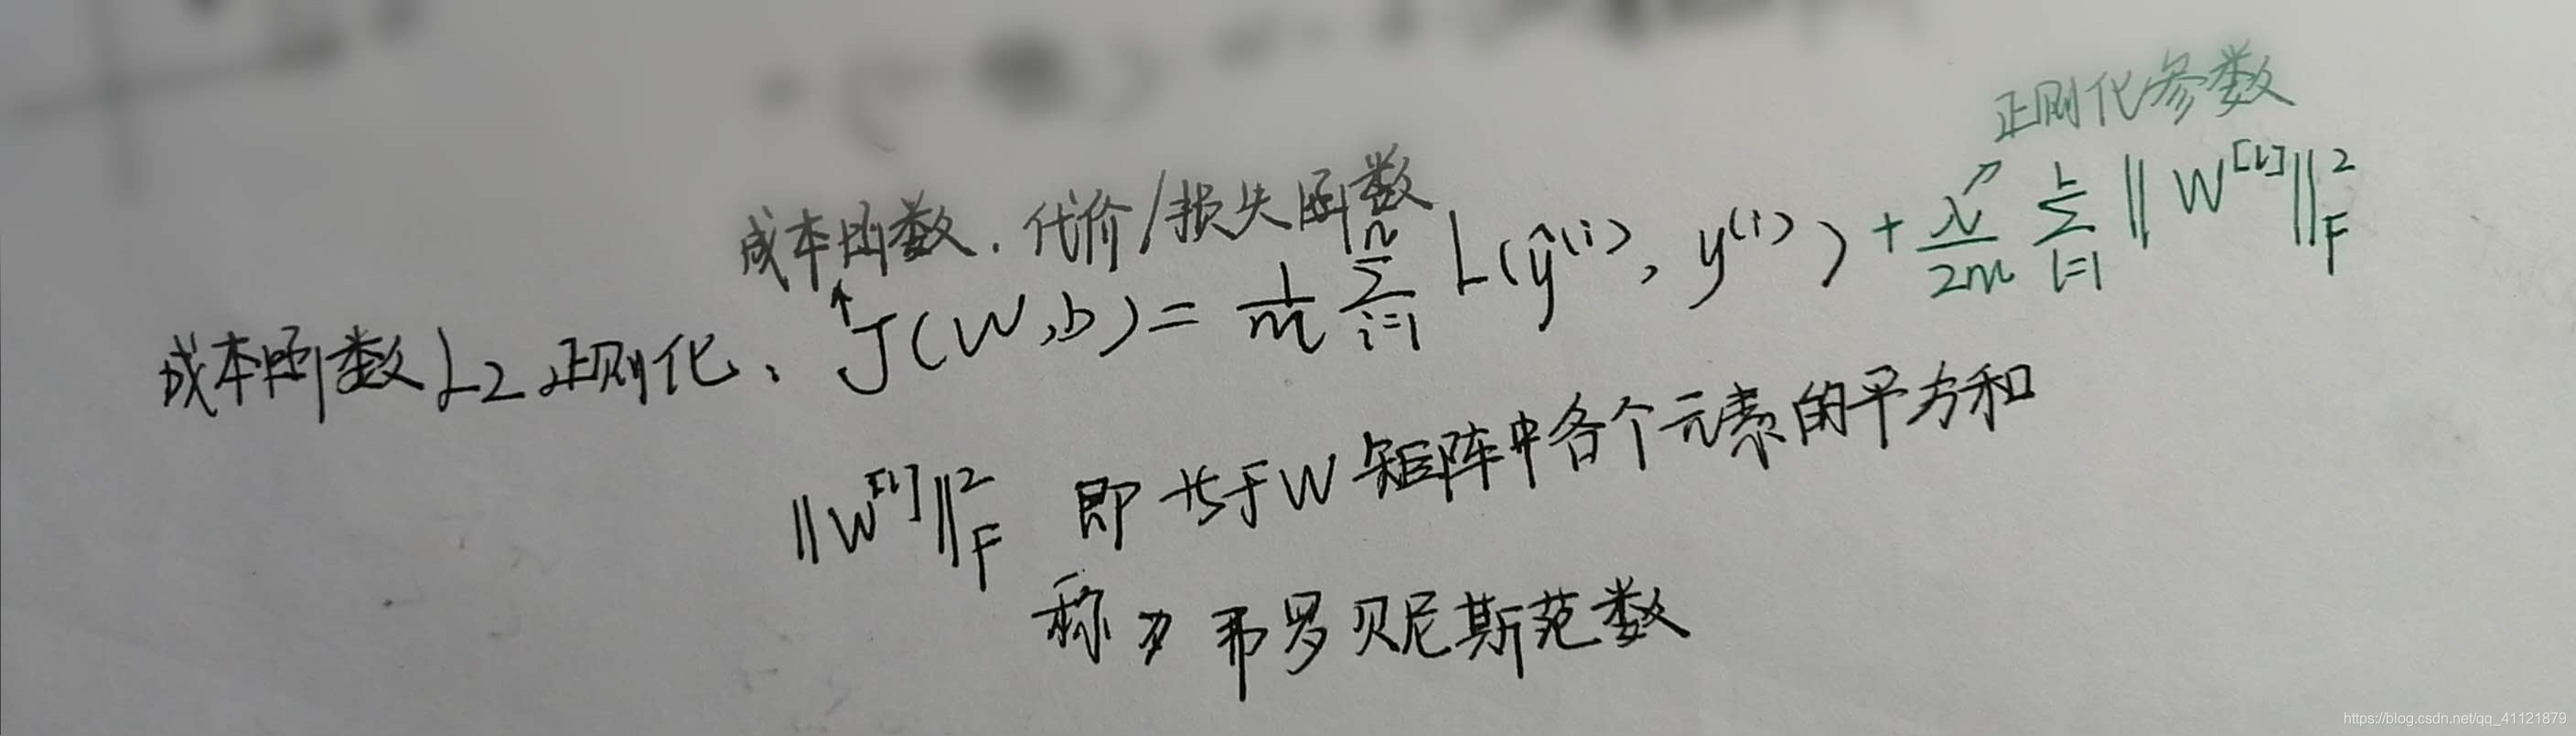 正则化参数
成本函数. 代价/损失函数
成本函数L2正则化、J(W,b) = 1/m Σ_{i=1}^{n} L(ŷ^(i), y^(i)) + λ/2m Σ_{l=1}^{L} ‖W^[l]‖²_F
‖W^[l]‖²_F 即 于W矩阵中各个元素的平方和
称为 弗罗贝尼斯范数
https://blog.csdn.net/qq_41121879